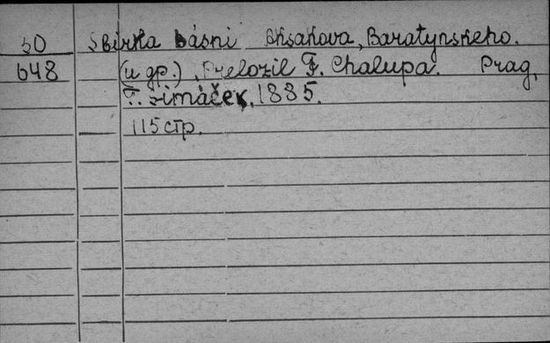 50 Sbirka básni Aksakova, Baratynskeho.
648 (и др.), Preložil F. Chalupa. Prag,
F. Šimáček, 1885.
115 стр.